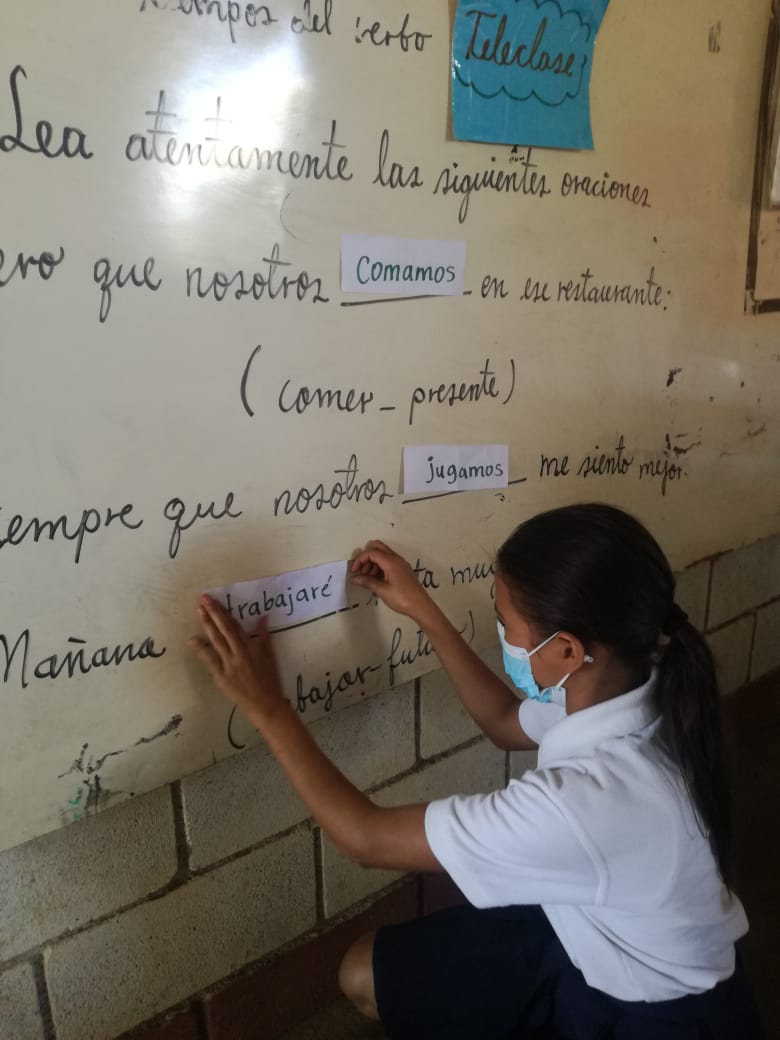 del verbo
Teleclase
Lea atentamente las siguientes oraciones
que nosotros Comamos en ese restaurante:
(comer - presente)
que nosotros jugamos me siento mejor.
Mañana trabajaré